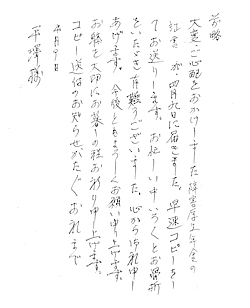 前略
大変ご心配をおかけしました障害厚生年金の
証書が、四月九日に届きました。早速コピーをし
てお送りします。お忙しい中、いろいろとお骨折
をいただき有難うございました。心から御礼申し
あげます。今後ともよろしくお願い申し上げます。
お体を大切にお暮しの程お祈り申し上げます。
コピー送付のお知らせかたがたお礼まで
四月九日
平澤